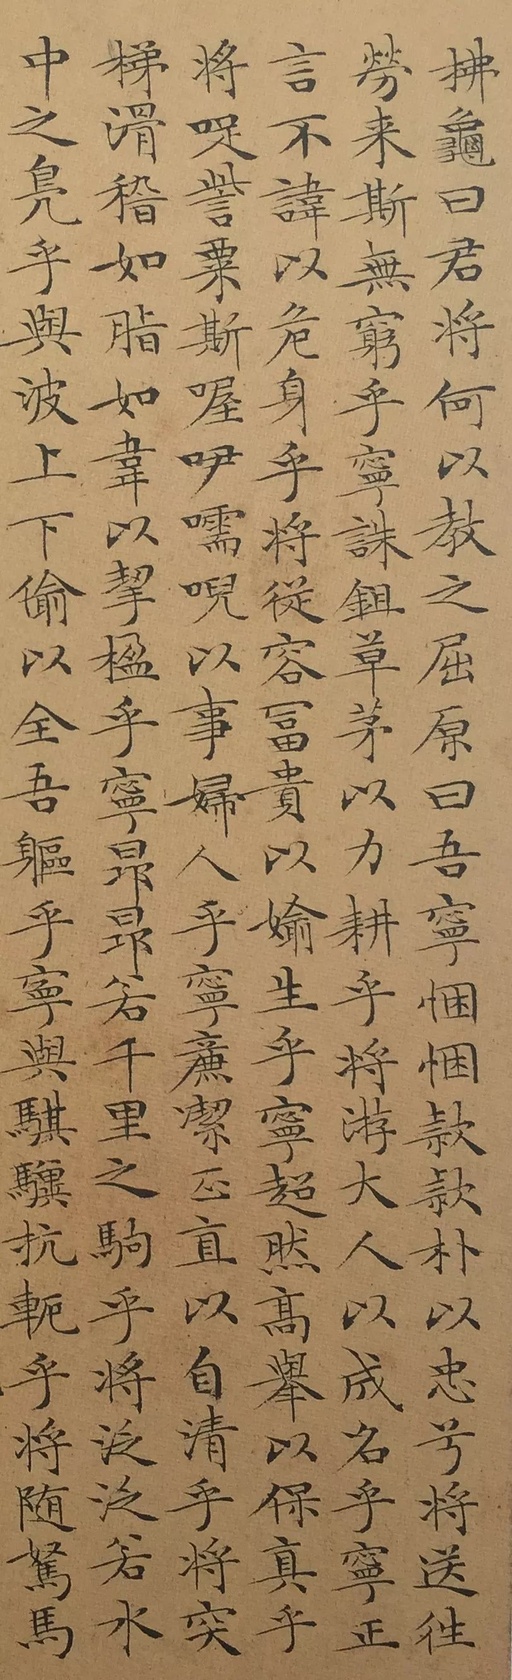 拂龜曰君将何以教之屈原曰吾寧悃悃款款朴以忠兮将送往
勞来斯無窮乎寧誅鉏草茅以力耕乎将游大人以成名乎寧正
言不諱以危身乎将從容冨貴以媮生乎寧超然高舉以保真乎
将哫訾粟斯喔咿嚅唲以事婦人乎寧廉潔正直以自清乎将突
梯滑稽如脂如韋以挈楹乎寧昂昂若千里之駒乎将泛泛若水
中之鳧乎與波上下偷以全吾軀乎寧與騏驥抗軛乎将随駑馬